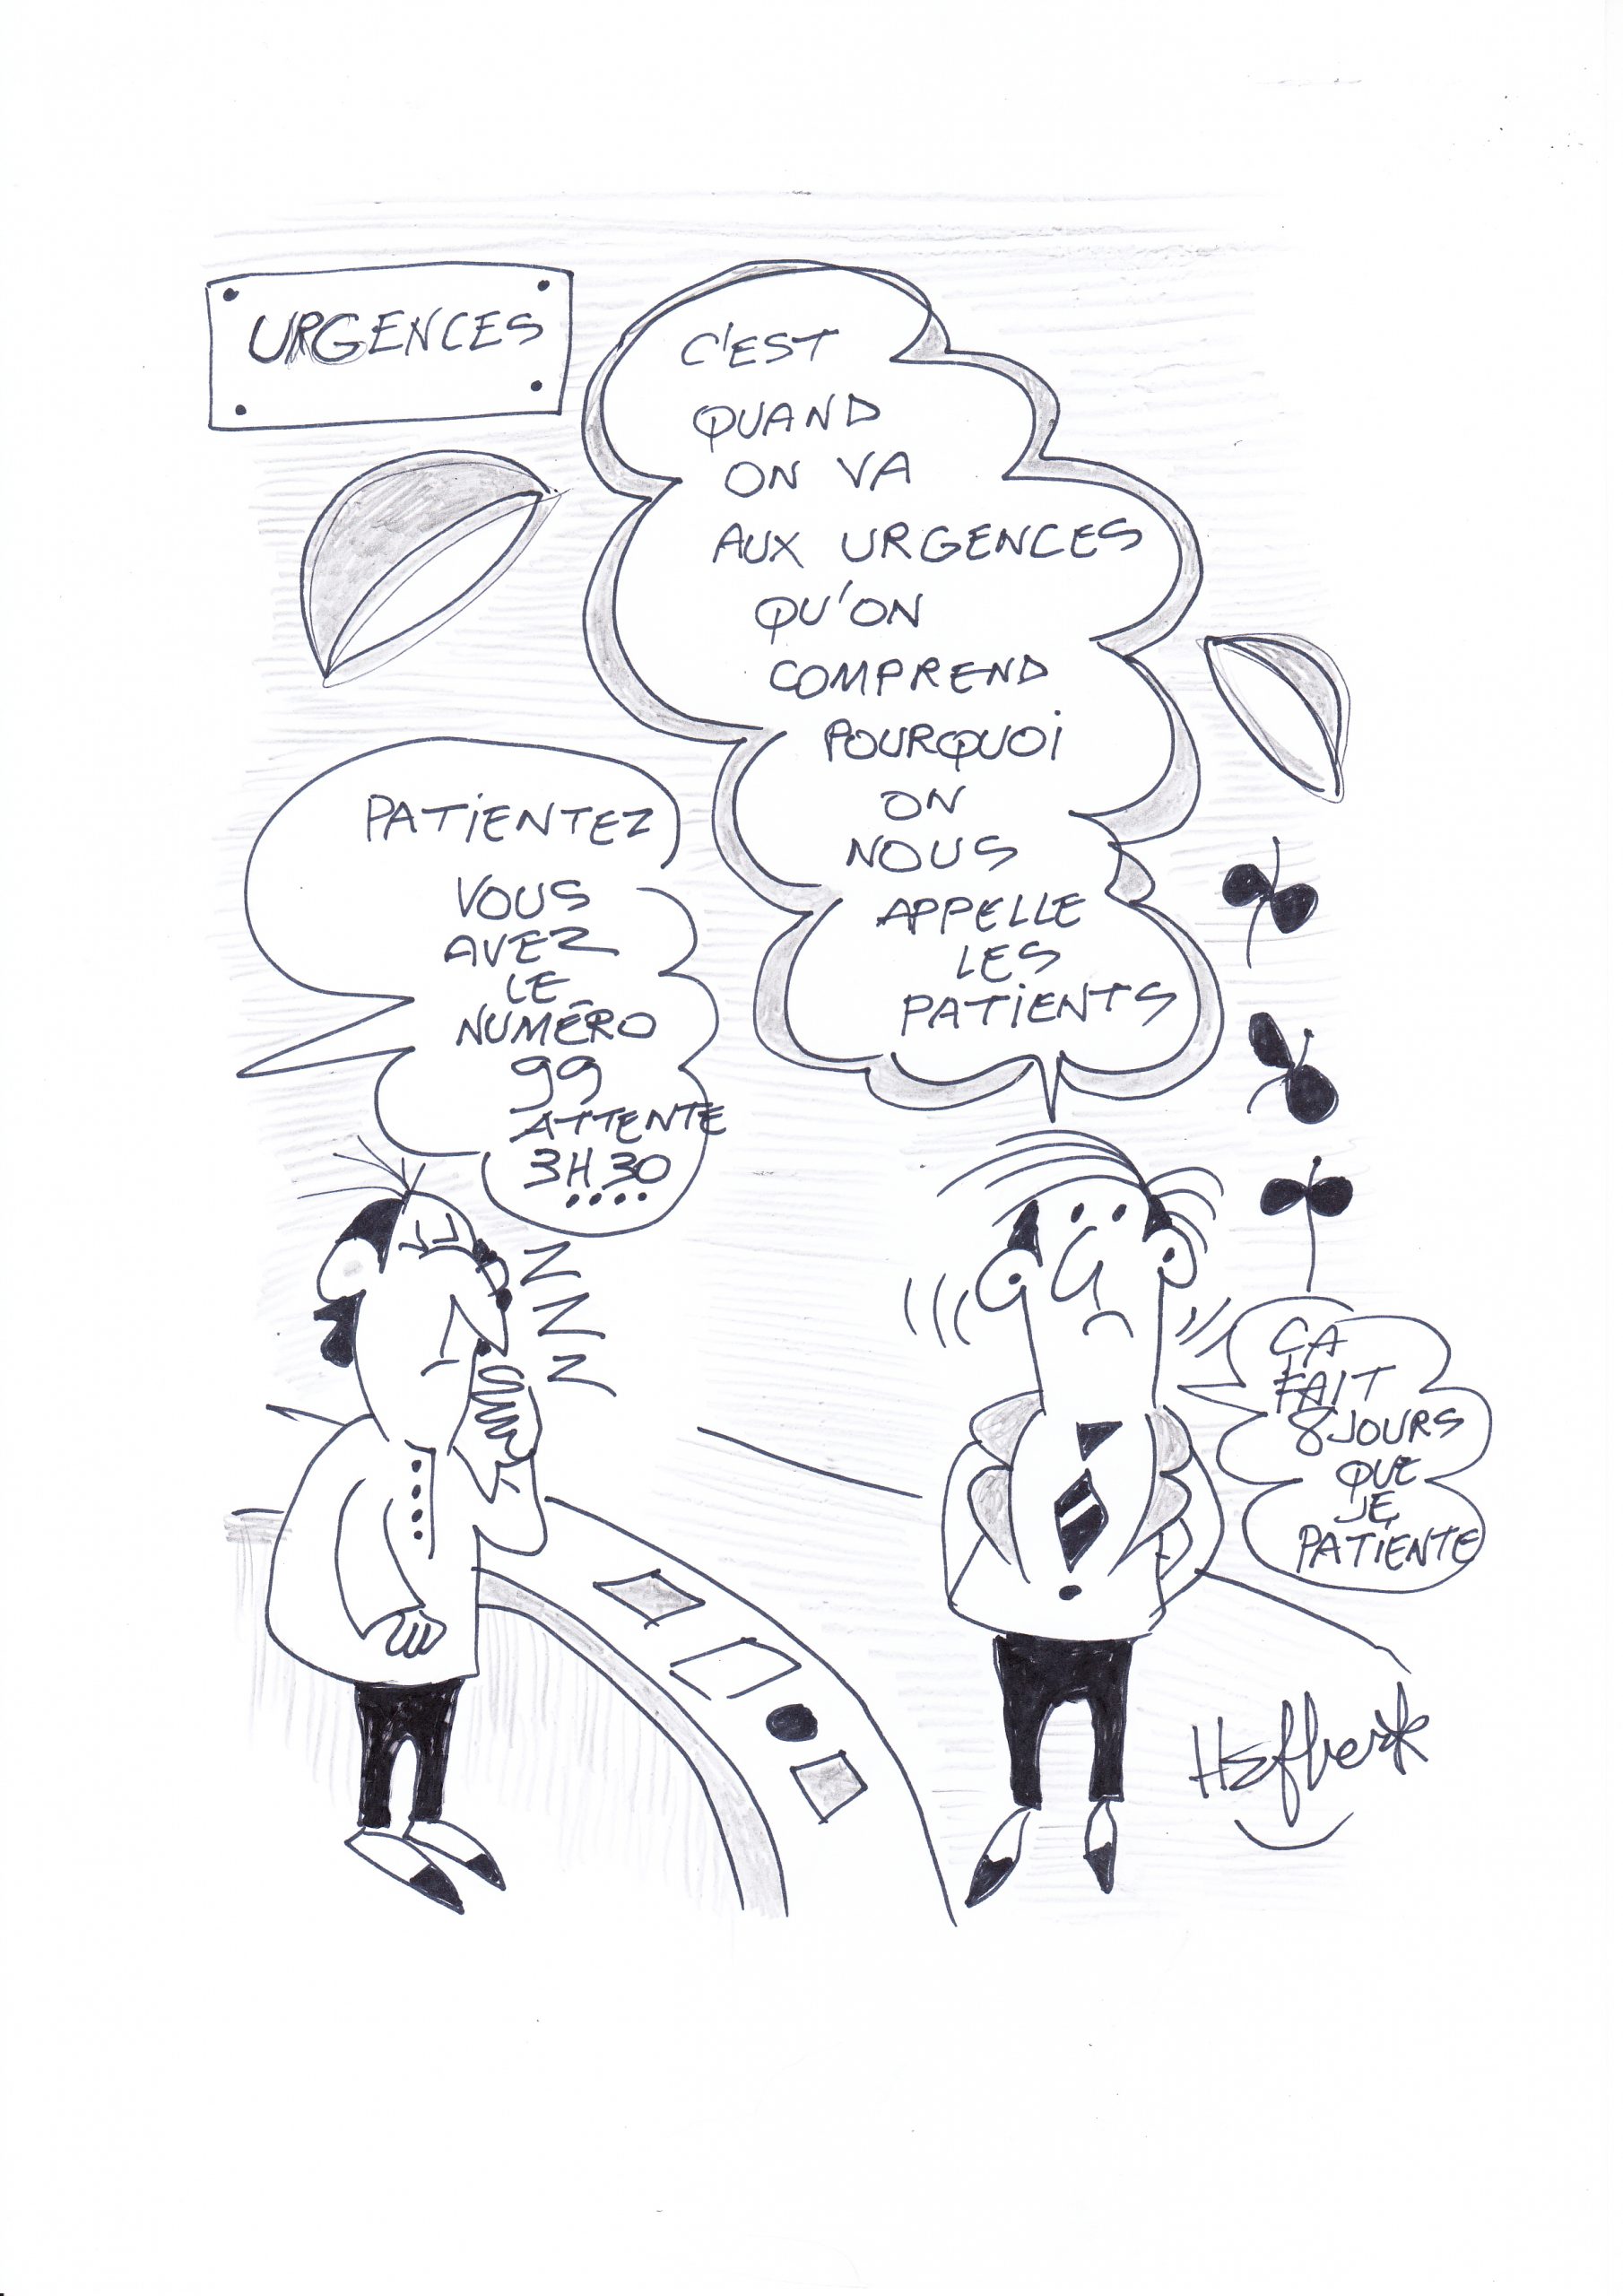 URGENCES
C'EST
QUAND
ON VA
AUX URGENCES
QU'ON
COMPREND
POURQUOI
ON
NOUS
APPELLE
LES
PATIENTS
PATIENTEZ
VOUS
AVEZ
LE
NUMÉRO
99
ATTENTE
3H30
....
Z
Z
Z
ÇA
FAIT
8 JOURS
QUE
JE
PATIENTE